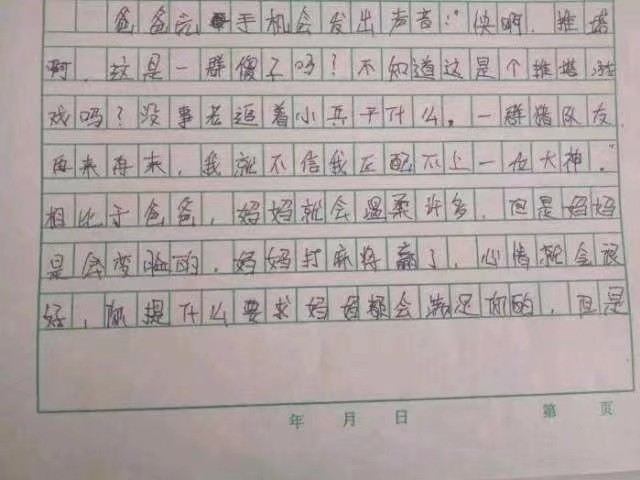 爸爸玩手机会发出声音:"快啊,推塔
啊,这是一群傻子吗?不知道这是个推塔游
戏吗?没事老追着小兵干什么,一群猪队友,
再来再来,我就不信我匹配不上一位大神。"
相比于爸爸,妈妈就会温柔许多,但是妈妈
是会变脸的,妈妈打麻将赢了,心情就会很
好,你提什么要求妈妈都会满足你的,但是
年 月 日
第 页